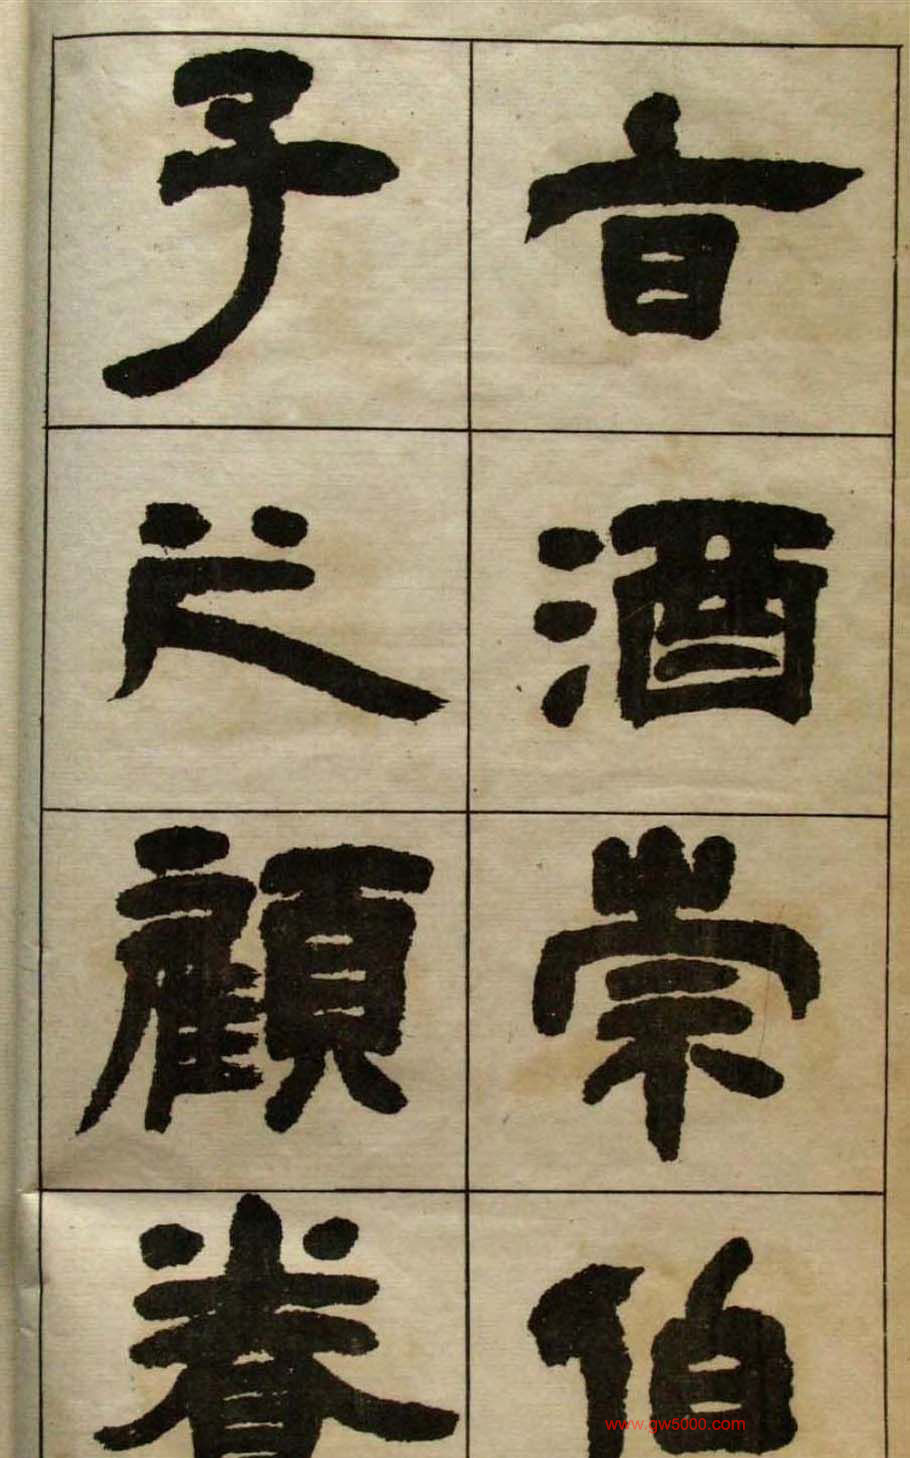 旨酒崇伯
子之顧養
www.gw5000.com